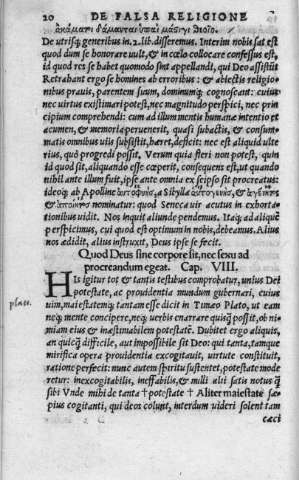 20 DE FALSA RELIGIONE
De utrisq; generibus in.2.lib.disseremus. Interim nobis sat est
quod dum se honorare uult, & in cœlo collocare confessus est,
id quod res se habet quomodo sint appellandi, qui Deo assistũt
Retrahant ergo se homines ab erroribus: & abiectis religio-
nibus prauis, parentem suum, dominumq; cognoscant: cuius
nec uirtus existimari potest, nec magnitudo perspici, nec prin
cipium comprehendi: cum ad illum mentis humanæ intentio et
acumen, & memoria peruenerit, quasi subactis, & consum-
matis omnibus uiis subsistit, hæret, deficit: nec est aliquid ulte
rius, quò progredi possit, Verum quia fieri non potest, quin
id quod sit, aliquando esse cœperit, consequens est, ut quando
nihil ante illum fuit, ipse ante omnia ex seipso sit procreatus:
ideoq; ab Apolline αὐτοφυὴς, a Sibylla αὐτογενὴς, & ἀγένητος
& ἀποίητος nominatur: quod Seneca uir acutus in exhorta-
tionibus uidit. Nos inquit aliunde pendemus. Itaq; ad aliquẽ
perspicimus, cui quod est optimum in nobis, debeamus. Alius
nos ædidit, alius instruxit, Deus ipse se fecit.
Quod Deus sine corpore sit, nec sexu ad
procreandum egeat. Cap. VIII.
His igitur tot & tantis testibus comprobatur, unius Dei
potestate, ac prouidentia mundum gubernari, cuius
plato. uim, maiestatemq; tantam esse dicit in Timæo Plato, ut eam
neq; mente concipere, neq; uerbis enarrare quisq̃ possit, ob ni-
miam eius & inæstimabilem potestatẽ. Dubitet ergo aliquis,
an quicq̃ difficile, aut impossibile sit Deo: qui tanta, tamque
mirifica opera prouidentia excogitauit, uirtute constituit,
ratione perfecit: nunc autem spiritu sustentet, potestate mode
retur: inexcogitabilis, ineffabilis, & nulli alii satis notus q̃
sibi Vnde mihi de tanta † potestate cogitanti † Aliter maiestate sæ-
pius cogitanti, qui deos colunt, interdum uideri solent tam
cæci